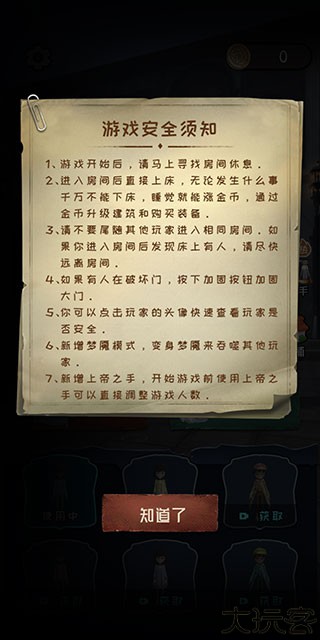 0
游戏安全须知
1、游戏开始后，请马上寻找房间休息．
2、进入房间后直接上床，无论发生什么事
千万不能下床，睡觉就能涨金币，通过
金币升级建筑和购买装备．
3、请不要尾随其他玩家进入相同房间．如
果你进入房间后发现床上有人，请尽快
远离房间．
4、如果有人在破坏门，按下加固按钮加固
大门．
5、你可以点击玩家的头像快速查看玩家是
否安全．
6、新增梦魇模式，变身梦魇来吞噬其他玩
家．
7、新增上帝之手，开始游戏前使用上帝之
手可以直接调整游戏人数．
使用中
获取
知道了
获取
大玩客